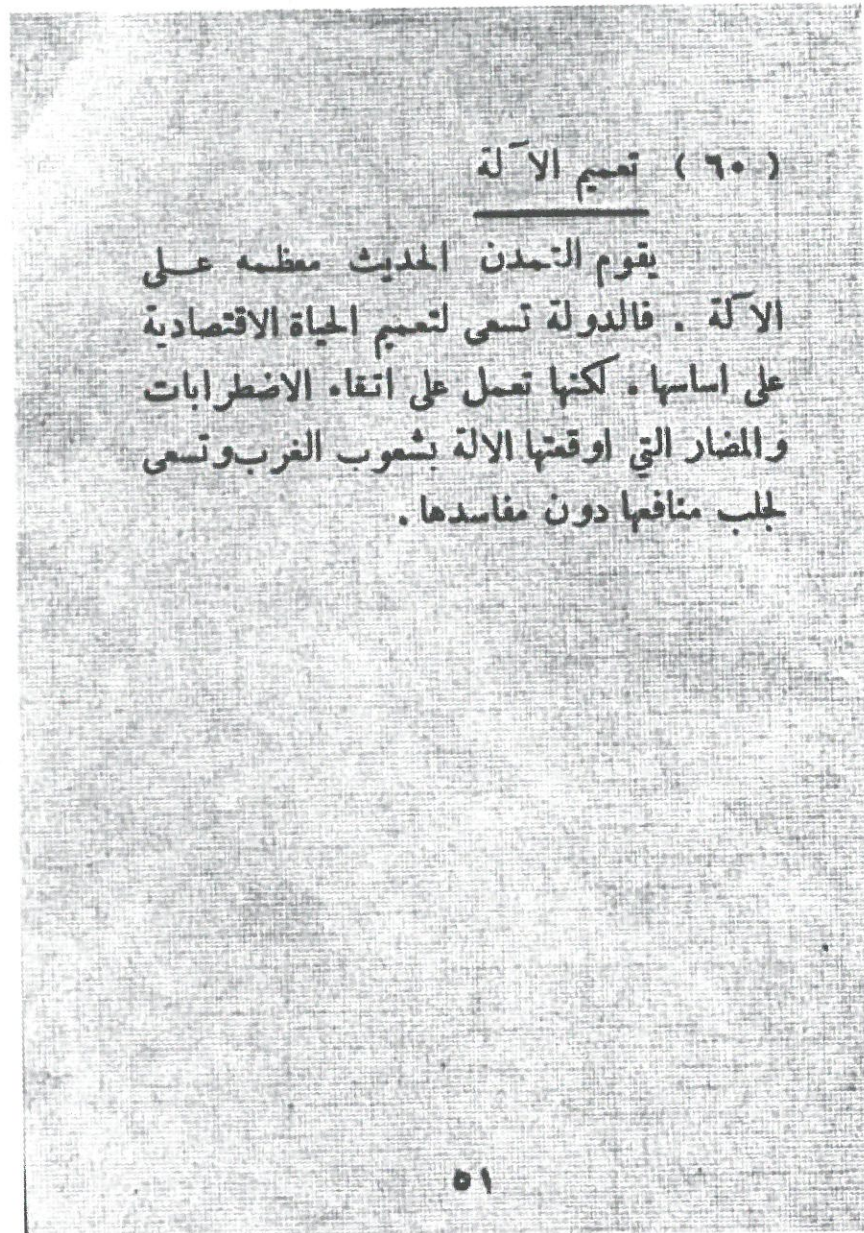 ( ٦٠ ) تعميم الآلة
يقوم التمدن الحديث معظمه على
الآلة . فالدولة تسعى لتعميم الحياة الاقتصادية
على اساسها . لكنها تعمل على اتقاء الاضطرابات
والمضار التي اوقعتها الالة بشعوب الغرب وتسعى
لجلب منافعها دون مفاسدها .
٥١